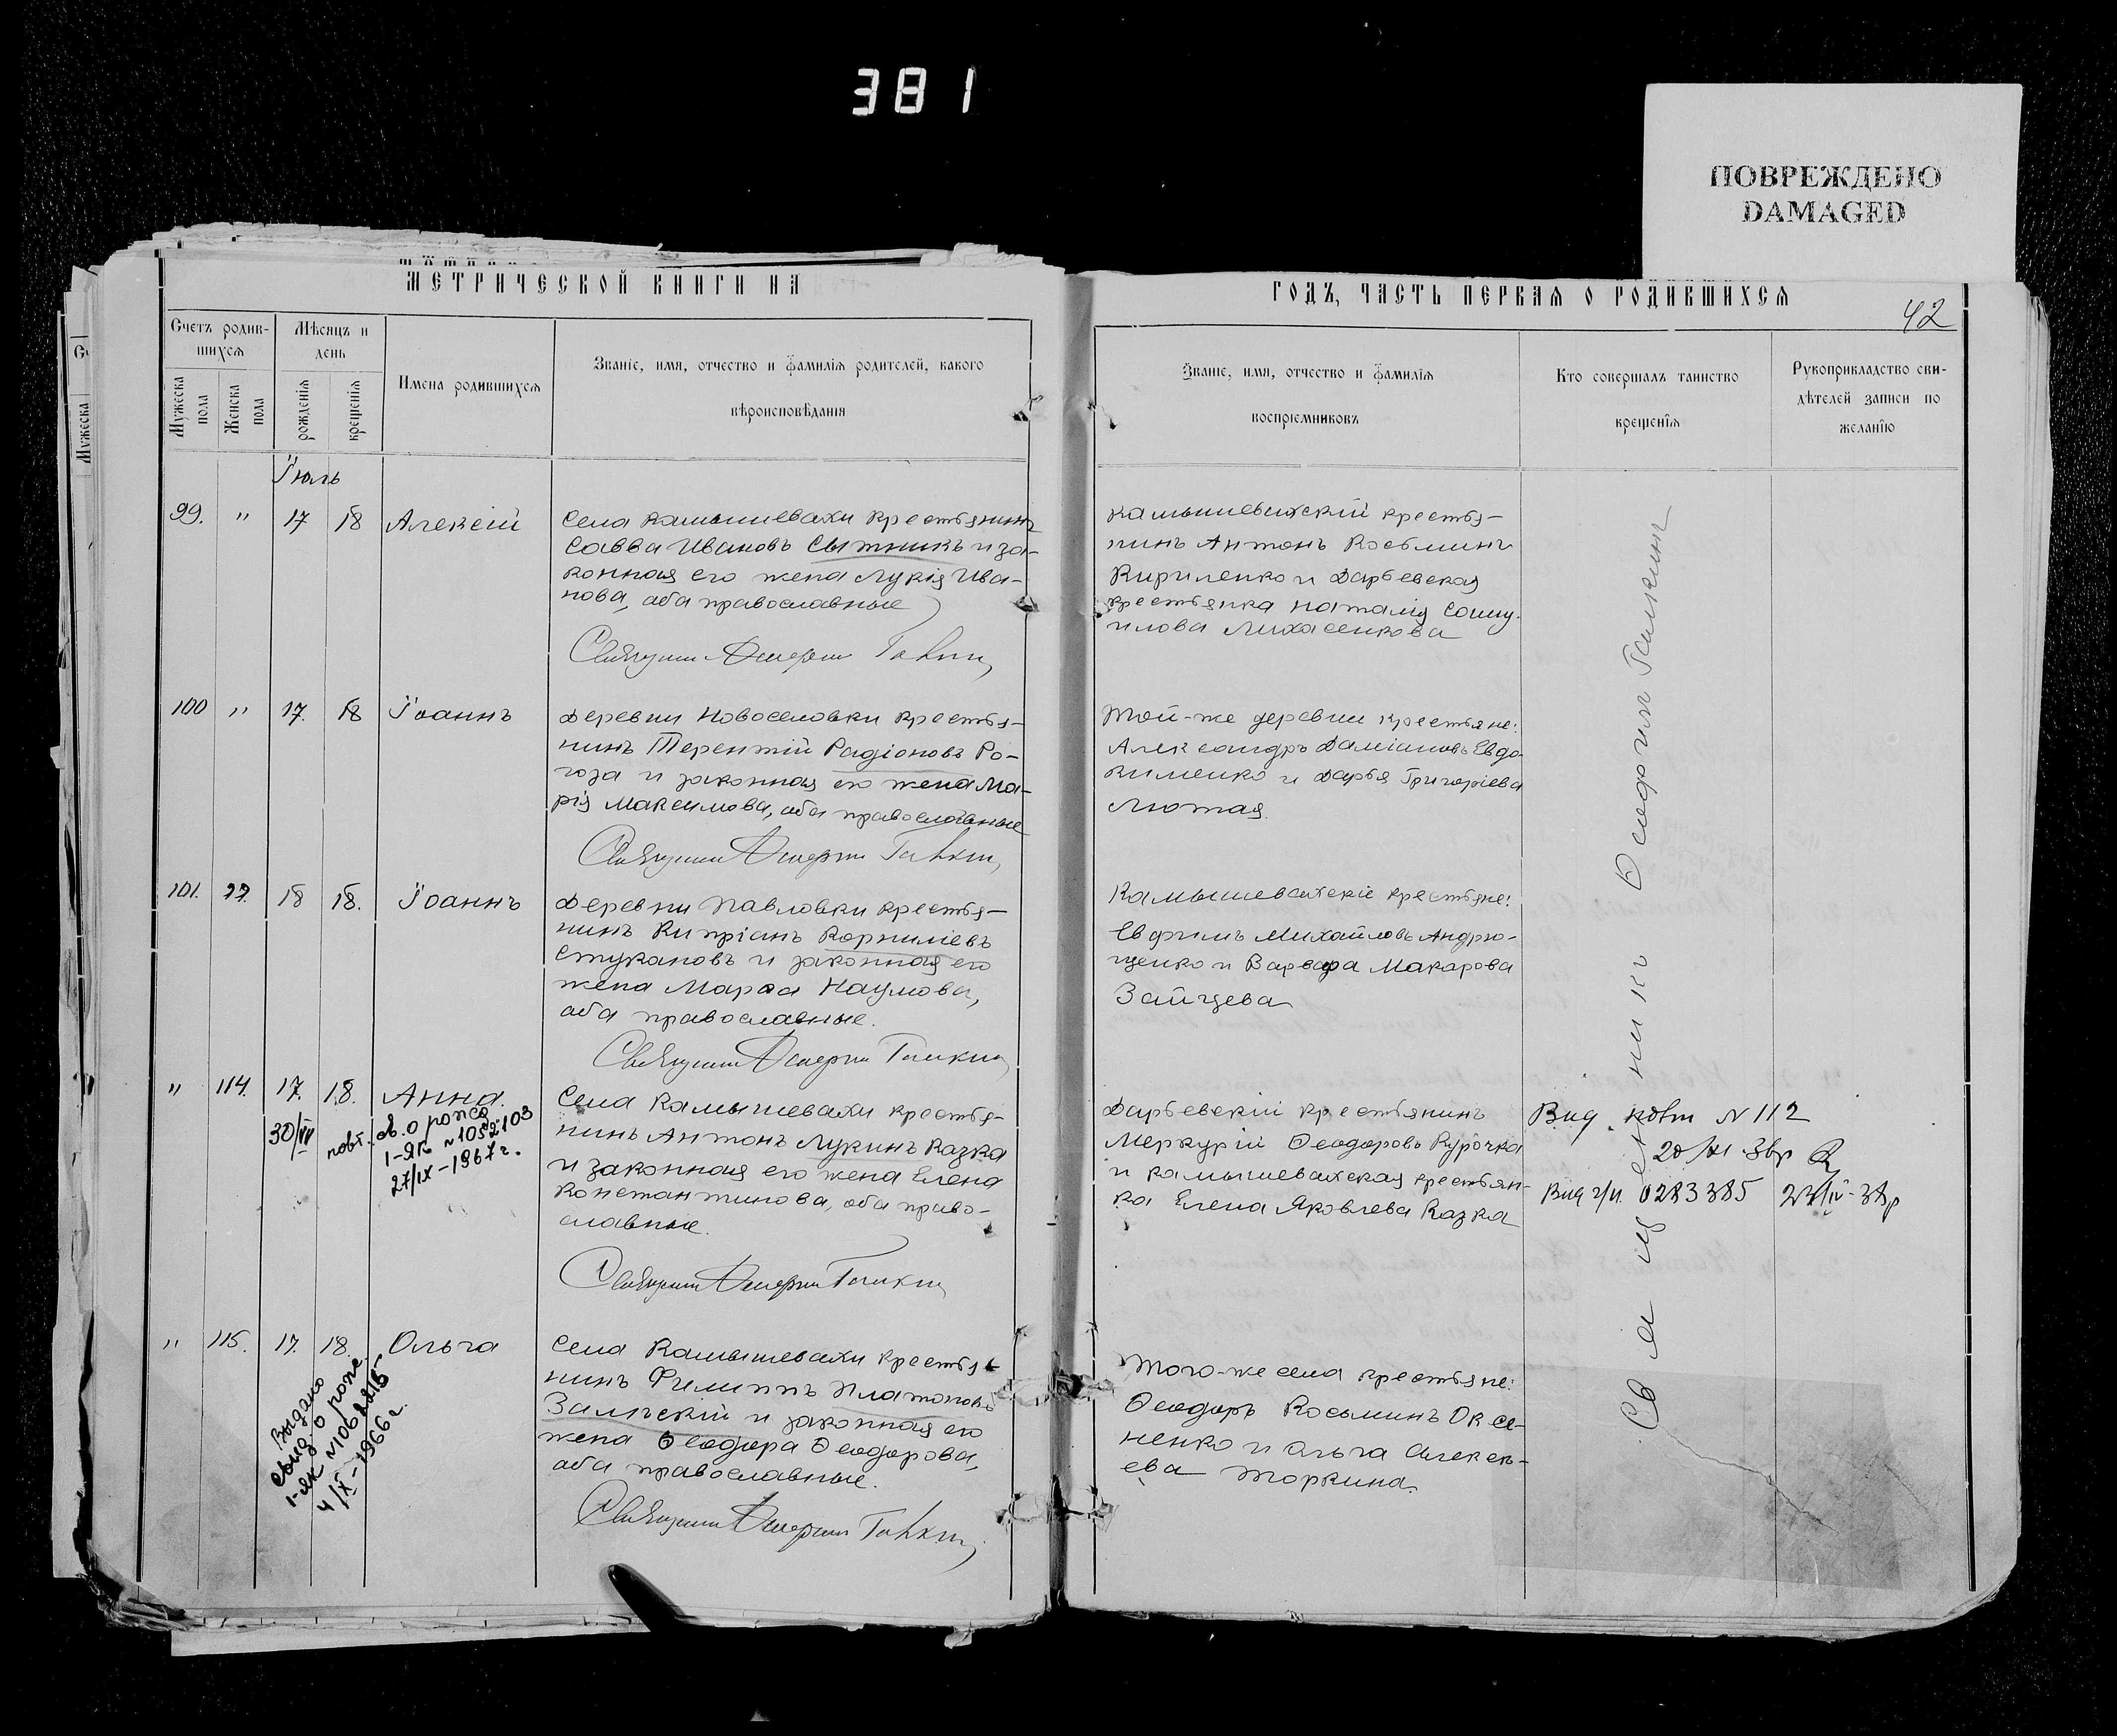 381
ПОВРЕЖДЕНО
DAMAGED
МЕТРИЧЕСКОЙ КНИГИ НА
ГОДЪ, ЧАСТЬ ПЕРВАЯ О РОДИВШИХСЯ
42
Счетъ родив-
шихся
Мѣсяцъ и
день
Мужеска
пола
Женска
пола
рожденія
крещенія
Имена родившихся
Званіе, имя, отчество и фамилія родителей, какого
вѣроисповѣданія
Званіе, имя, отчество и фамилія
воспріемниковъ
Кто совершалъ таинство
крещенія
Рукоприкладство сви-
дѣтелей записи по
желанію
Іюль
99. " 17 18 Алексій
Села Камышевахи крестьянинъ
Савва Ивановъ Сытникъ и за-
конная его жена Лукія Ива-
нова, оба православные
Священникъ Галкинъ
Камышевахскій кресть-
нинъ Антонъ Косьминъ
Кириленко и Дарьевская
крестьянка Наталія
Лихасенкова
100 " 17. 18 Іоаннъ
Деревни Новоселовки кресть-
нинъ Терентій Радіоновъ Ро-
гоза и законная его жена Ма-
рія Максимова, оба православные
Священникъ Галкинъ
Той-же деревни крестьяне:
Александръ Даміановъ Евдо-
кименко и Дарья Григоріева
Лютая.
101. 18 18. Іоаннъ
Деревни Павловки кресть-
нинъ Кипріанъ Корниліевъ
Стукановъ и законная его
жена Марѳа Наумова,
оба православные.
Священникъ Галкинъ
Камышевахскіе крестьяне:
Евфимъ Михайловъ Андрю-
щенко и Варвара Макарова
Зайцева
" 114. 17. 18. Анна.
30/VII повт. св. о рожд
1-ЯК №1052103
27/IX-1967г.
Села Камышевахи кресть-
нинъ Антонъ Лукинъ Казка
и законная его жена Елена
Константинова, оба право-
славные.
Священникъ Галкинъ
Дарьевскій крестьянинъ
Меркурій Ѳеодоровъ Курочка
и камышевахская крестьян-
ка Елена Яковлева Казка
Вид. повт N 112
20/XI 38р
Вид 0283385 38р
" 115. 17. 18. Ольга
Выдано
свид. о рожд.
1-ЯК
4/IX-1966г.
Села Камышевахи кресть-
нинъ Филиппъ Платоновъ
и законная его
жена Ѳеодора Ѳеодорова,
оба православные.
Священникъ Галкинъ
Того-же села крестьяне:
Ѳеодоръ Косьминъ Оксе-
ненко и Ольга Алексѣ-
ева Торкина.
Священникъ Галкинъ